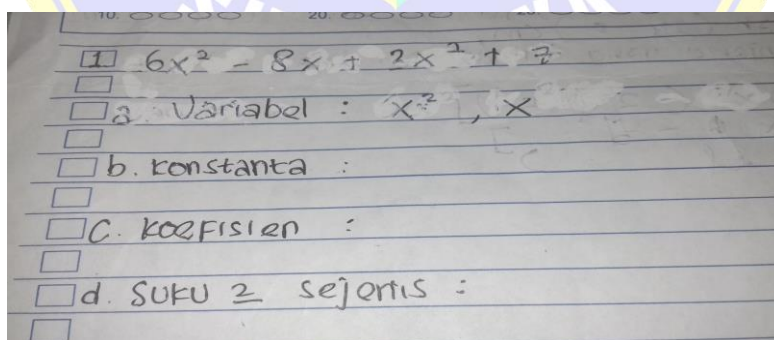 10. 20. 25.
1 6x² - 8x + 2x² + 7
a. Variabel : x², x
b. konstanta :
c. koefisien :
d. Suku 2 sejenis :